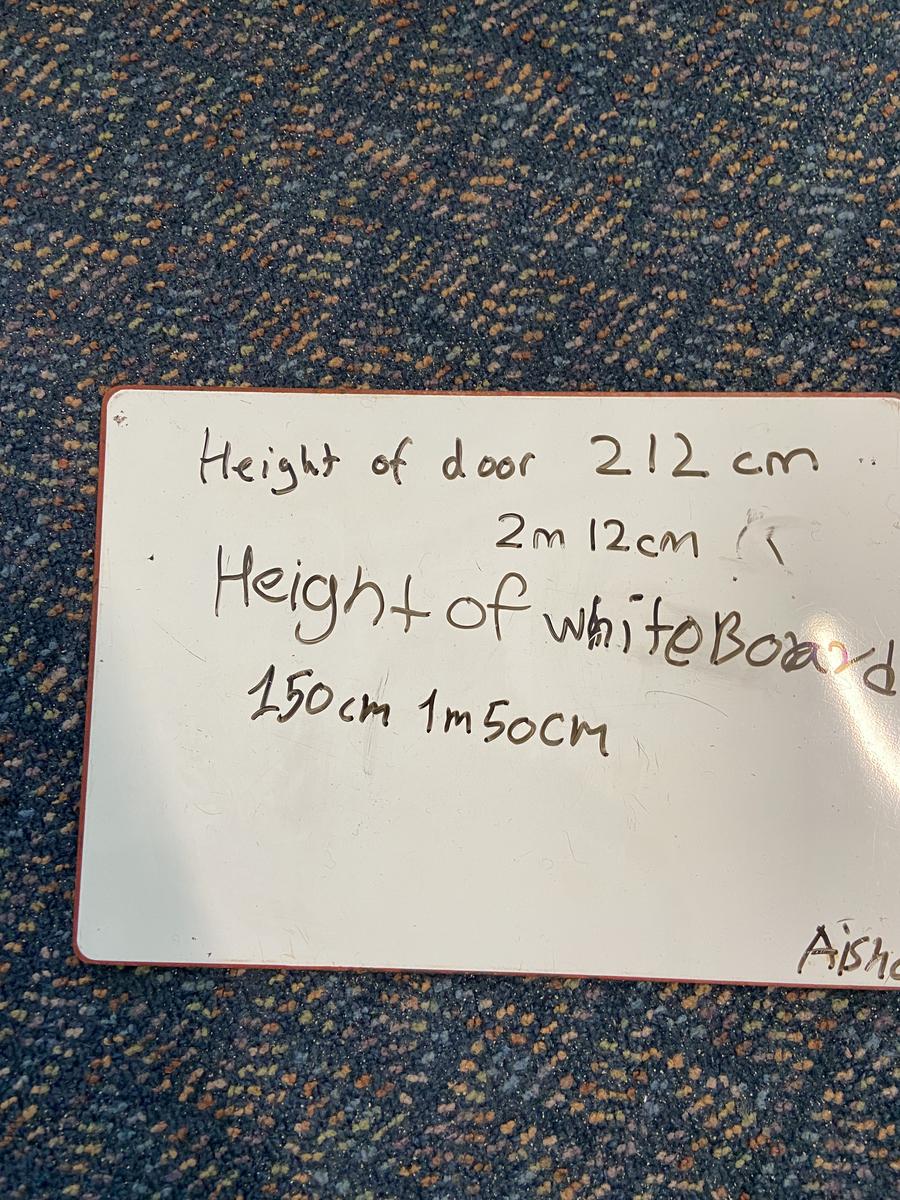 Height of door 212 cm
2m 12cm
Height of whiteBoard
150cm 1m50cm